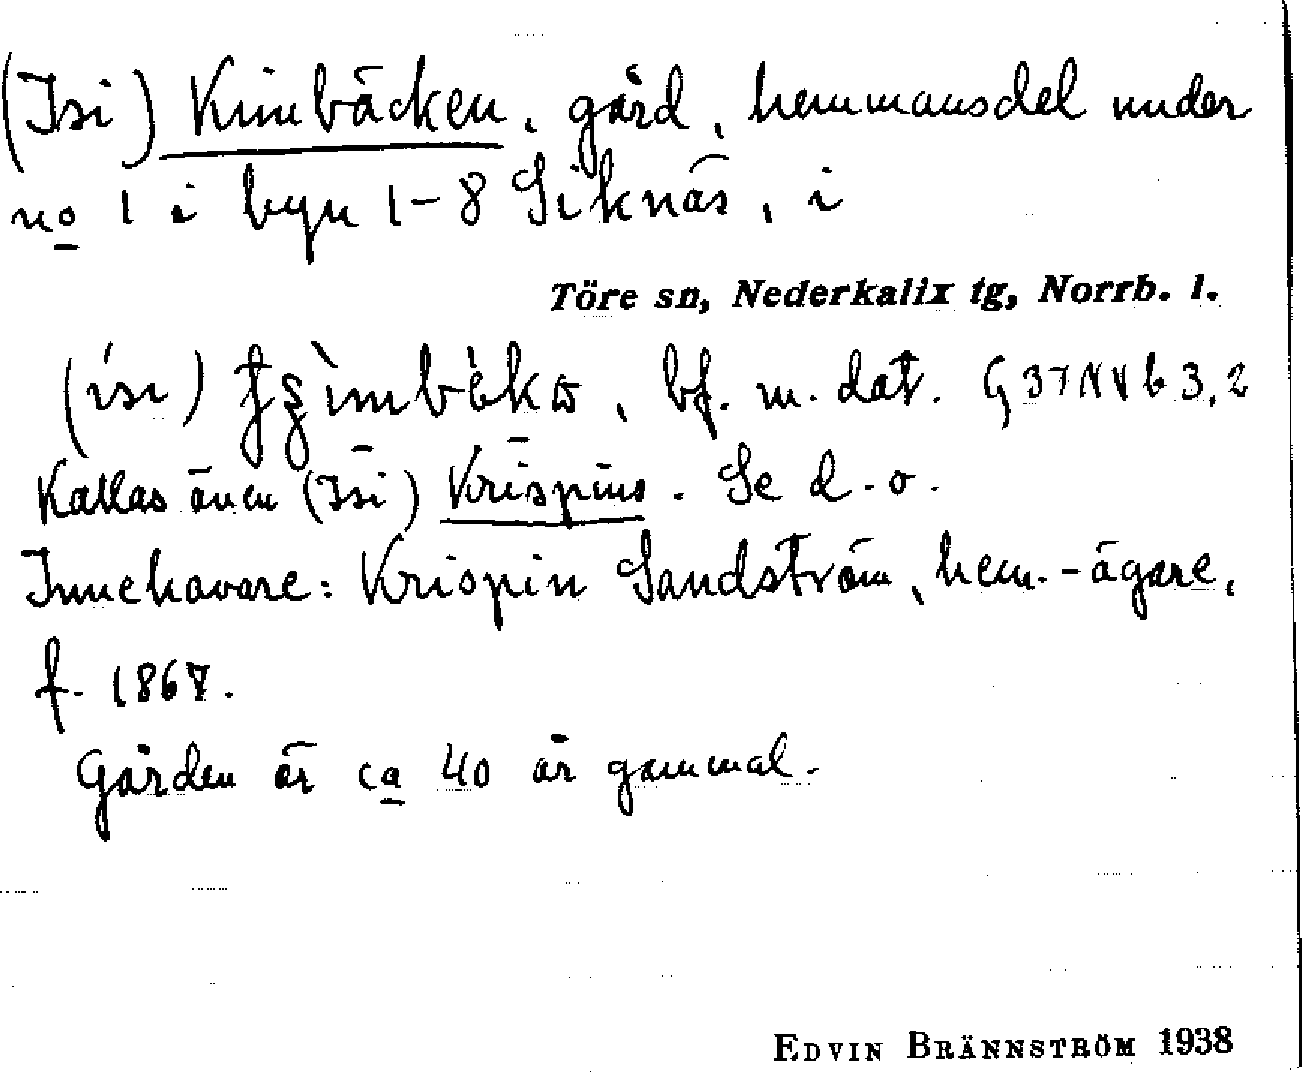 (Isi) Kimbäcken, gård, hemmansdel under
no 1 i byn 1-8 Siknäs, i
Töre sn, Nederkalix tg, Norrb. l.
(ìsı) , bf. m. dat. G 37 NV b 3,2
Kallas även (Isi) Krispins. Se d.o.
Innehavare: Krispin Sandström, hem.-ägare,
f. 1867.
Gården är ca 40 år gammal.
EDVIN BRÄNNSTRÖM 1938